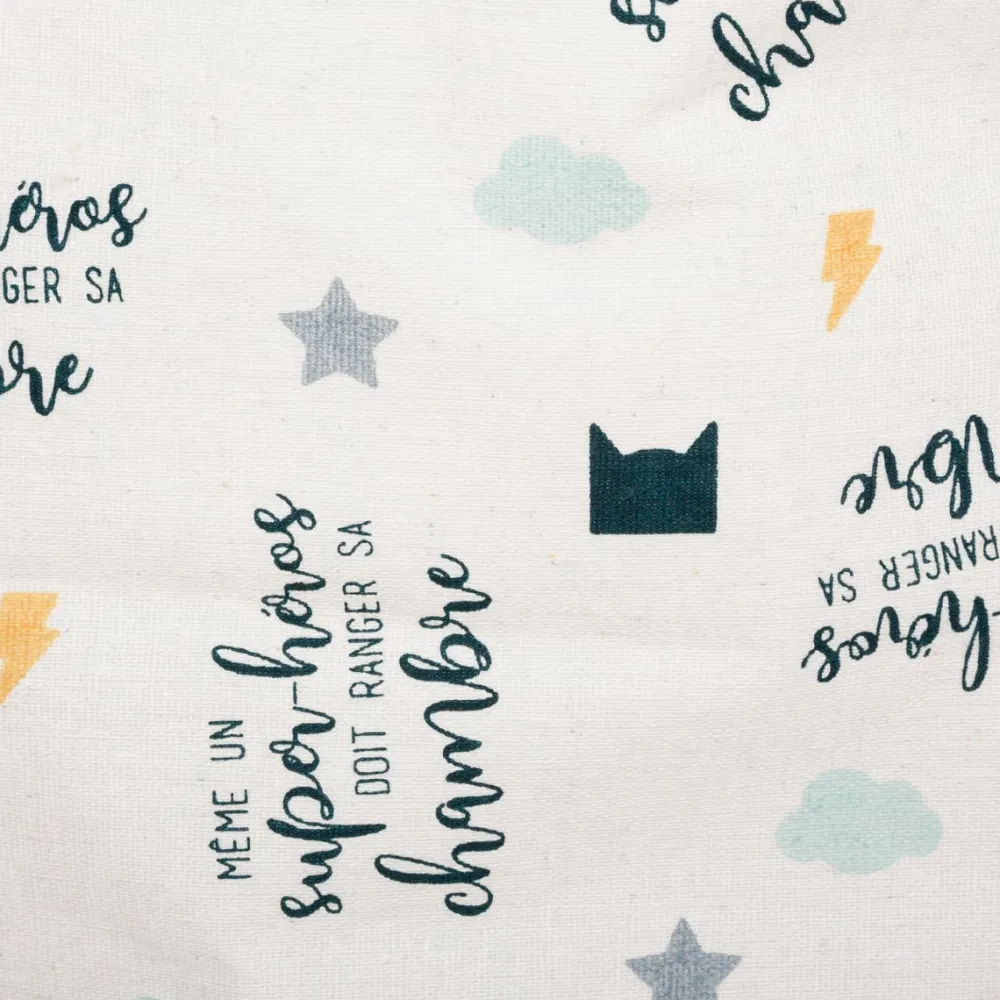 cha
éros
GER SA
bre
MÊME UN
super-héros
DOIT RANGER SA
chambre
bre
RANGER SA
-héros